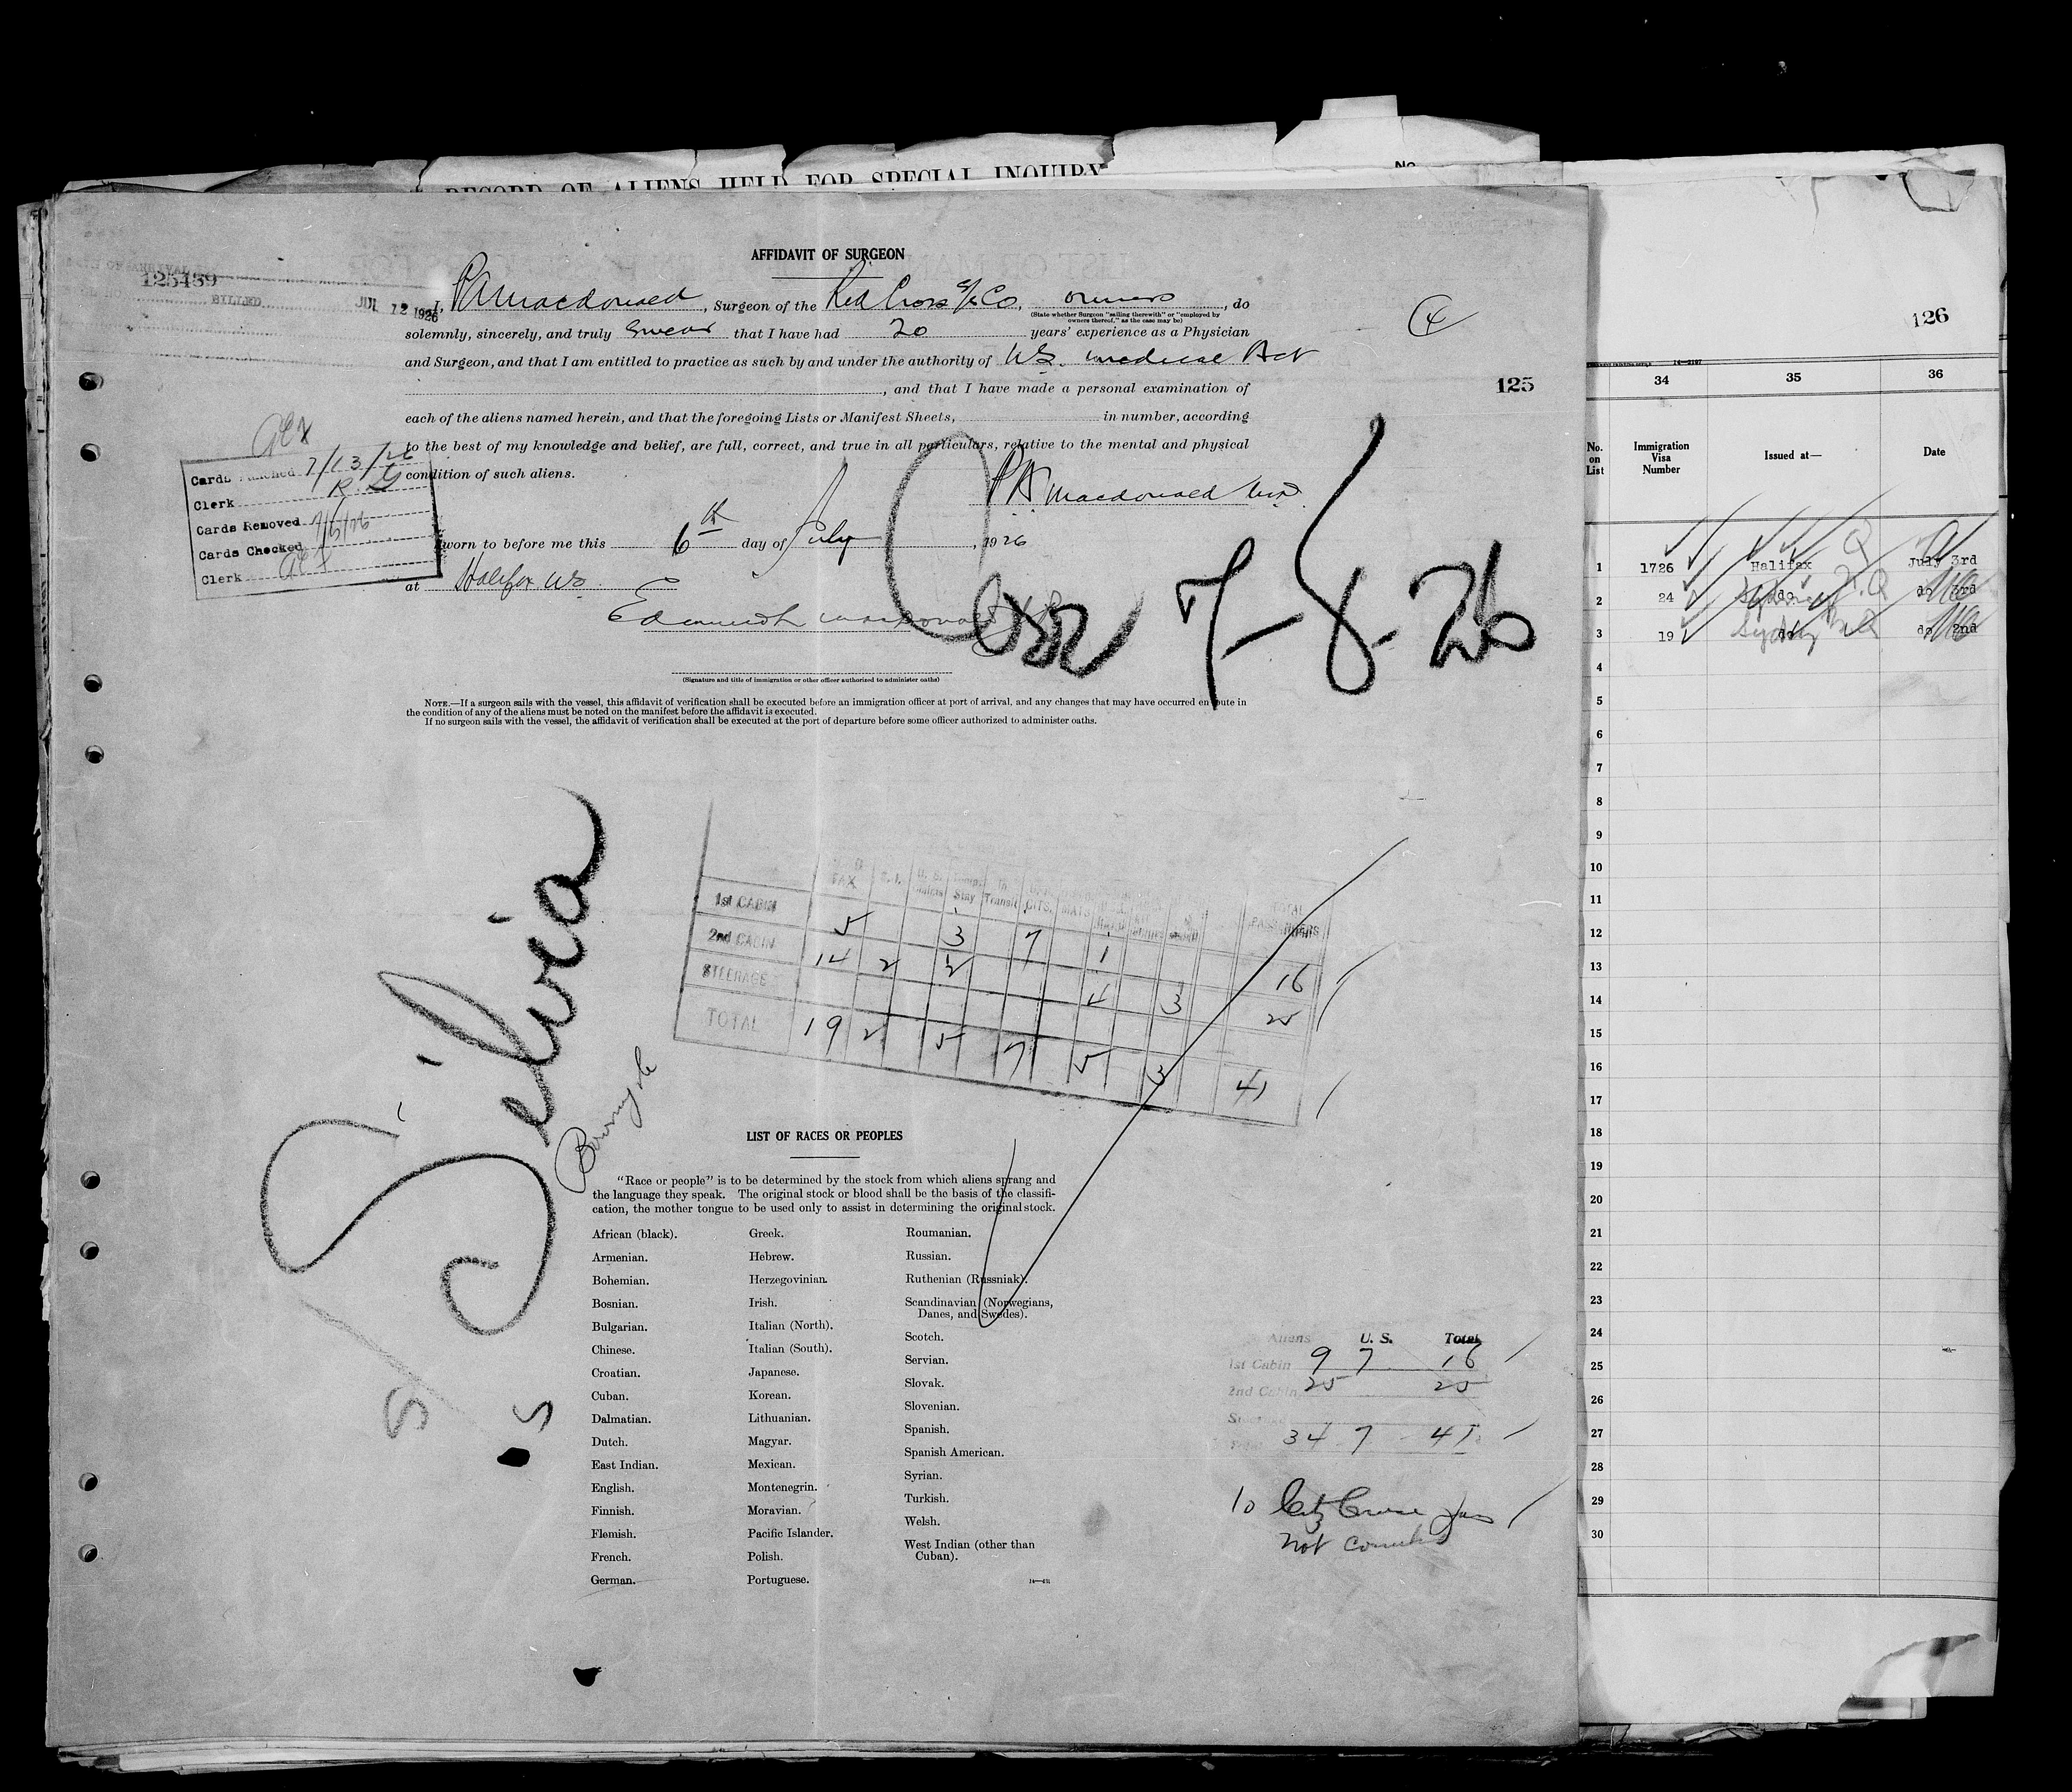 RECORD OF ALIENS HELD FOR SPECIAL INQUIRY
No.
AFFIDAVIT OF SURGEON
125489
BILLED JUL 12 1926
I, P A Macdonald, Surgeon of the Red Cross S/S Co, owners, do
(State whether Surgeon "sailing therewith" or "employed by owners thereof," as the case may be)
solemnly, sincerely, and truly swear that I have had 20 years' experience as a Physician
and Surgeon, and that I am entitled to practice as such by and under the authority of N.S. medical Act
, and that I have made a personal examination of
each of the aliens named herein, and that the foregoing Lists or Manifest Sheets, in number, according
to the best of my knowledge and belief, are full, correct, and true in all particulars, relative to the mental and physical
condition of such aliens.
P A Macdonald M.D.
4
125
Cards Punched 7/13/26
Clerk R. G
Cards Removed
Cards Checked
Clerk
Sworn to before me this 6th day of July, 1926
at Halifax N.S.
7-8-26
(Signature and title of immigration or other officer authorized to administer oaths)
NOTE.—If a surgeon sails with the vessel, this affidavit of verification shall be executed before an immigration officer at port of arrival, and any changes that may have occurred en route in
the condition of any of the aliens must be noted on the manifest before the affidavit is executed.
If no surgeon sails with the vessel, the affidavit of verification shall be executed at the port of departure before some officer authorized to administer oaths.
Silvia
TAX S.I. Stay Transit CITS. TOTAL PASSENGERS
1st CABIN 5 3 7 1 16
2nd CABIN 14 2 2 4 3 25
STEERAGE
TOTAL 19 2 5 7 5 3 41
LIST OF RACES OR PEOPLES
"Race or people" is to be determined by the stock from which aliens sprang and
the language they speak. The original stock or blood shall be the basis of the classifi-
cation, the mother tongue to be used only to assist in determining the original stock.
African (black).
Armenian.
Bohemian.
Bosnian.
Bulgarian.
Chinese.
Croatian.
Cuban.
Dalmatian.
Dutch.
East Indian.
English.
Finnish.
Flemish.
French.
German.
Greek.
Hebrew.
Herzegovinian.
Irish.
Italian (North).
Italian (South).
Japanese.
Korean.
Lithuanian.
Magyar.
Mexican.
Montenegrin.
Moravian.
Pacific Islander.
Polish.
Portuguese.
Roumanian.
Russian.
Ruthenian (Russniak).
Scandinavian (Norwegians,
Danes, and Swedes).
Scotch.
Servian.
Slovak.
Slovenian.
Spanish.
Spanish American.
Syrian.
Turkish.
Welsh.
West Indian (other than
Cuban).
S
S
Aliens U. S. Total
1st Cabin 9 7 16
2nd Cabin 25 25
34 7 41
10
not counted
126
34 35 36
No. on List
Immigration Visa Number
Issued at—
Date
1 1726 Halifax July 3rd
2 24 do do 3rd
3 19 Sydney do 2nd
4
5
6
7
8
9
10
11
12
13
14
15
16
17
18
19
20
21
22
23
24
25
26
27
28
29
30